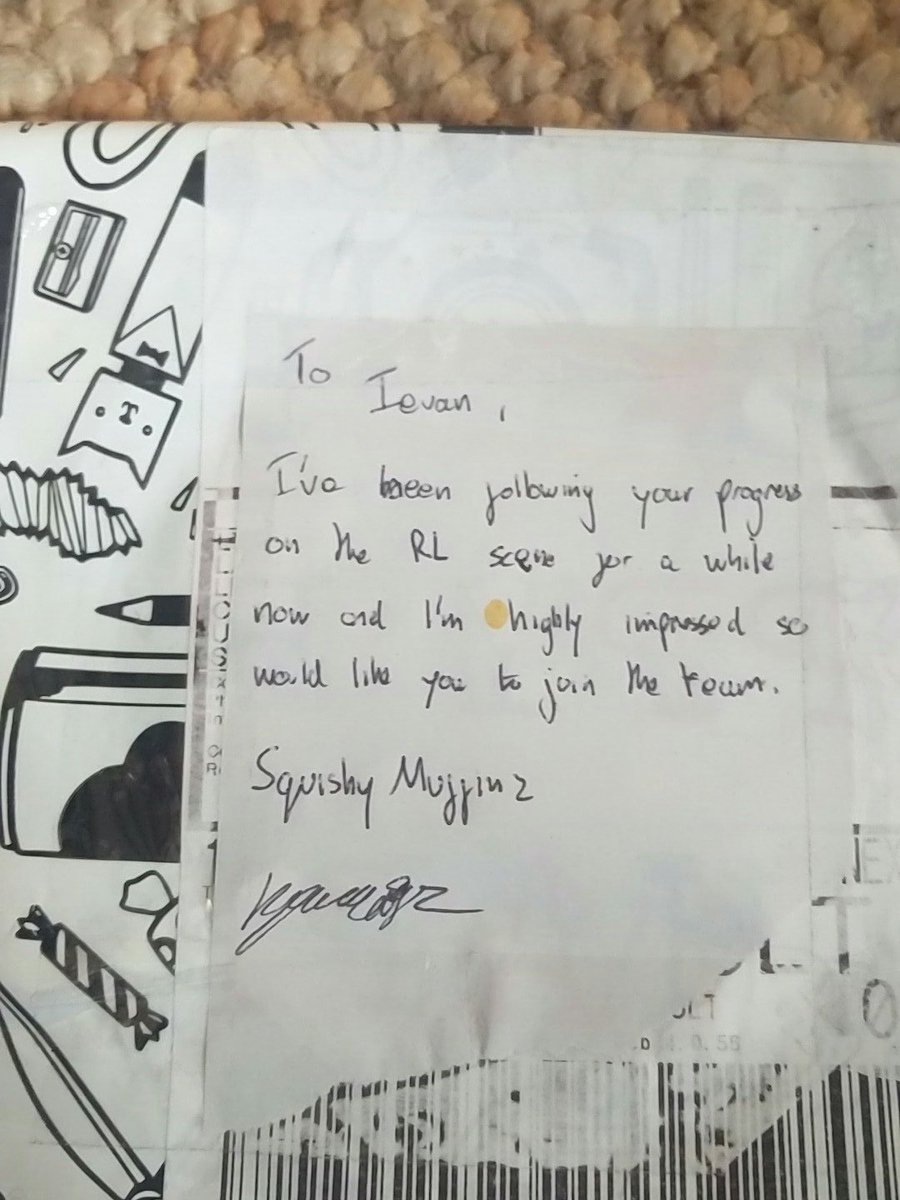 To
Ievan,
I've been following your progress
on the RL scene for a while
now and I'm highly impressed so
would like you to join the team.
Squishy Muffinz
T